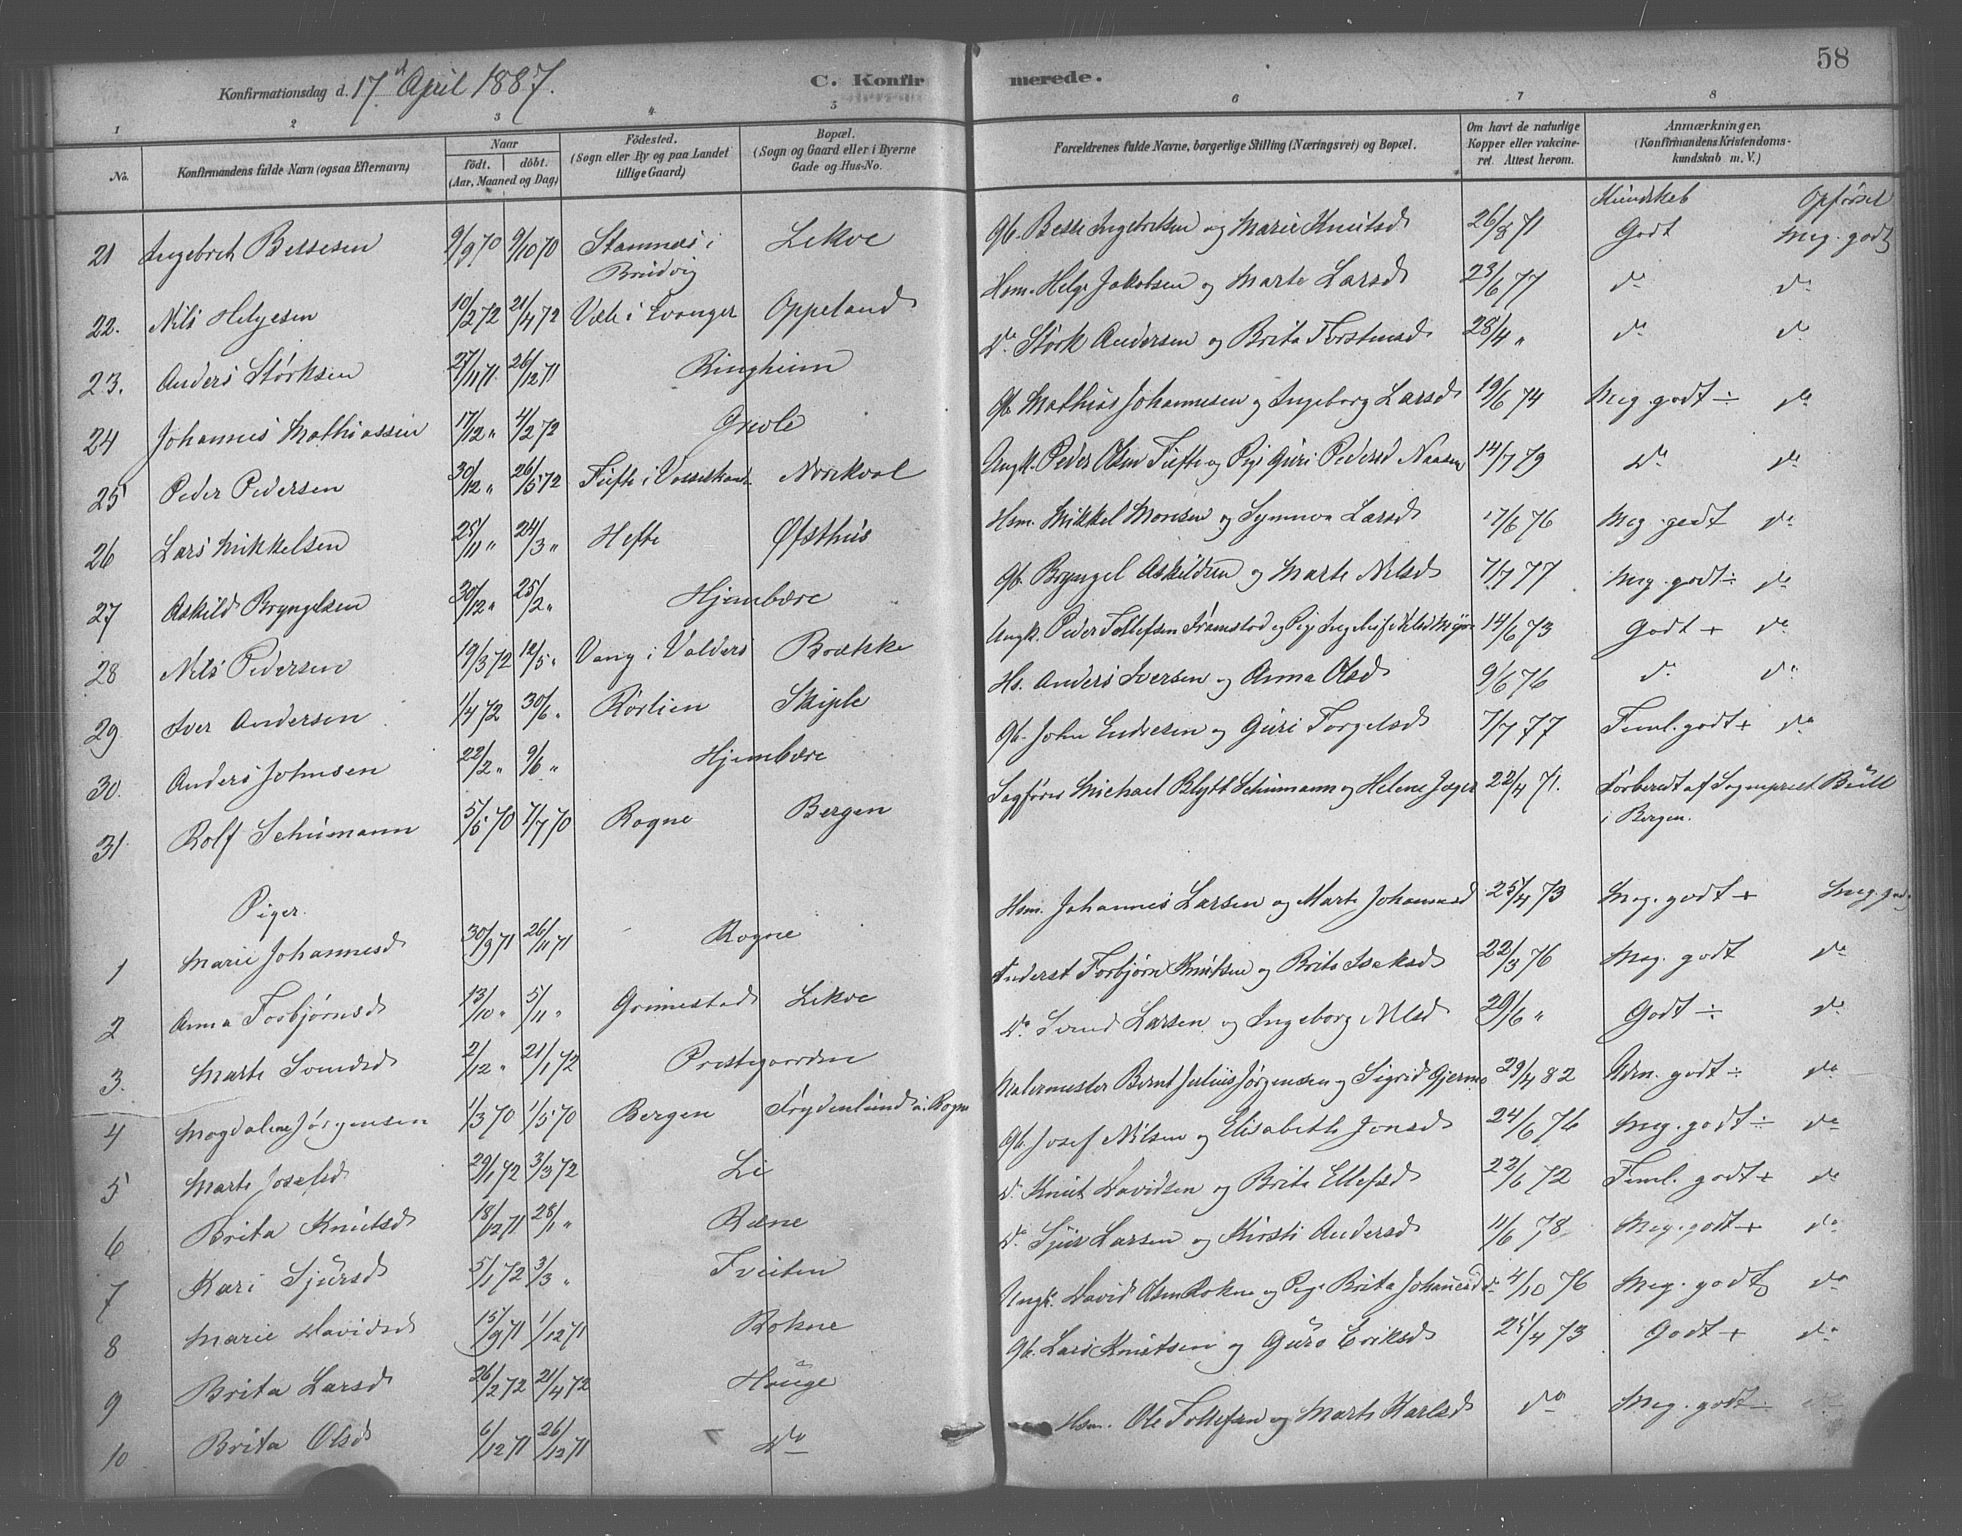 58
Konfirmationsdag d. 17d April 1887.
C. Konfirmerede.
1 2 3 4 5 6 7 8
No. Konfirmandens fulde Navn (ogsaa Efternavn) Naar födt. döbt. (Aar, Maaned og Dag) Födested. (Sogn eller By og paa Landet tillige Gaard) Bopæl. (Sogn og Gaard eller i Byerne Gade og Hus-No. Forældrenes fulde Navne, borgerlige Stilling (Næringsvei) og Bopæl. Om havt de naturlige Kopper eller vakcineret. Attest herom. Anmærkninger. (Konfirmandens Kristendomskundskab m. V.)
Kundskab Opførsel
21 Ingebret Bessesen 9/9 70 9/10 70 Stamnes i Brudvig Lekve Gb. Besse Ingebretsen og Marie Knutsd 26/8 71 Godt Meg. godt
22. Nils Helgesen 10/2 72 21/4 72 Væle i Evanger Oppeland Hsm. Helge Jakobsen og Marte Larsd 23/6 77 do do
23. Anders Størksen 27/11 71. 26/12 71 Ringheim Do Størk Andersen og Brita Torstensd 28/4 " do do
24 Johannes Mathiassen 17/12 " 4/2 72 Grevle Gb. Mathias Johannesen og Ingeborg Larsd 19/6 74 Meg. godt ÷ do
25 Peder Pedersen 30/12 " 26/5 72 Tufte i Vossestrand Norekval Ungk. Peder Olsen Tufte og Pige Guri Pedersd 14/7 79 Do do
26 Lars Mikkelsen 25/11 " 24/3 " Hefte Øfsthus Hsm. Mikkel Monsen og Synneva Larsd 17/6 76 Meg. godt do
27 Askild Bryngelsen 30/12 " 25/2 " Hjembære Gb. Bryngel Askildsen og Marte Nilsd 7/7 77 Meg. godt ÷ do
28 Nils Pedersen 19/3 72 12/5 " Vang i Valders Brække Ungk. Peder Tollefsen og Pige 14/6 73 Godt + do
29 Iver Andersen 1/4 72 30/6 " Rørlien Skiple Hs. Anders Iversen og Anna Olsd 9/6 76 do do
30. Anders Johnsen 22/2 " 9/6 " Hjembære Gb. John Endresen og Guri Torgelsd 7/7 77 Teml. godt + do
31. Rolf Schumann 5/5 70 1/7 70 Rogne Bergen Sagfører Michael Blytt Schumann og Helene Jæger 22/4 71. Forberedt af Sognepræst Bull i Bergen.
Piger.
1 Marie Johannesd 30/9 71 26/11 71 Rogne Hsm. Johannes Larsen og Marte Johannesd 25/4 73 Meg. godt + Meg. godt
2 Anna Torbjørnsd 13/10 " 5/11 " Grimestad Lekve Inderst Torbjørn Knutsen og Brita Isaksd 22/3 76 Meg. godt do
3. Marte Svendsd 2/12 " 21/1 72 Prestegaarden Do Svend Larsen og Ingeborg Nilsd 29/6 " Godt ÷ do
4 Magdalene Jørgensen 1/3 70 1/5 70 Bergen Frydenlund u. Rogne Malermester Bernt Julius Jørgensen og Sigrid 29/4 82 Udm. godt ÷ do
5 Marte Josefsd 29/1 72 3/3 72 Li Gb. Josef Nilsen og Elisabeth Jonsd 24/6 76 Meg. godt ÷ do
6 Brita Knutsd 18/12 71 28/1 " Rene Do Knut Davidsen og Brita Ellefsd 22/6 72 Teml. godt + do
7 Kari Sjursd 5/1 72 3/3 " Tveiten Do Sjur Larsen og Kirsti Andersd 11/6 78 Meg. godt + do
8 Marie Davidsd 15/9 71 1/12 71 Rokne Ungk. David Olsen Rokne og Pige Brita Johannesd do 4/10 76 Meg. godt do
9 Brita Larsd 26/2 72 21/4 72 Houge Gb. Lars Knutsen og Guro Eriksd 25/4 73 Godt + do
10 Brita Olsd 6/12 71 26/12 71 Do Hsm. Ole Tollefsen og Marte Karlsd do Meg. godt do